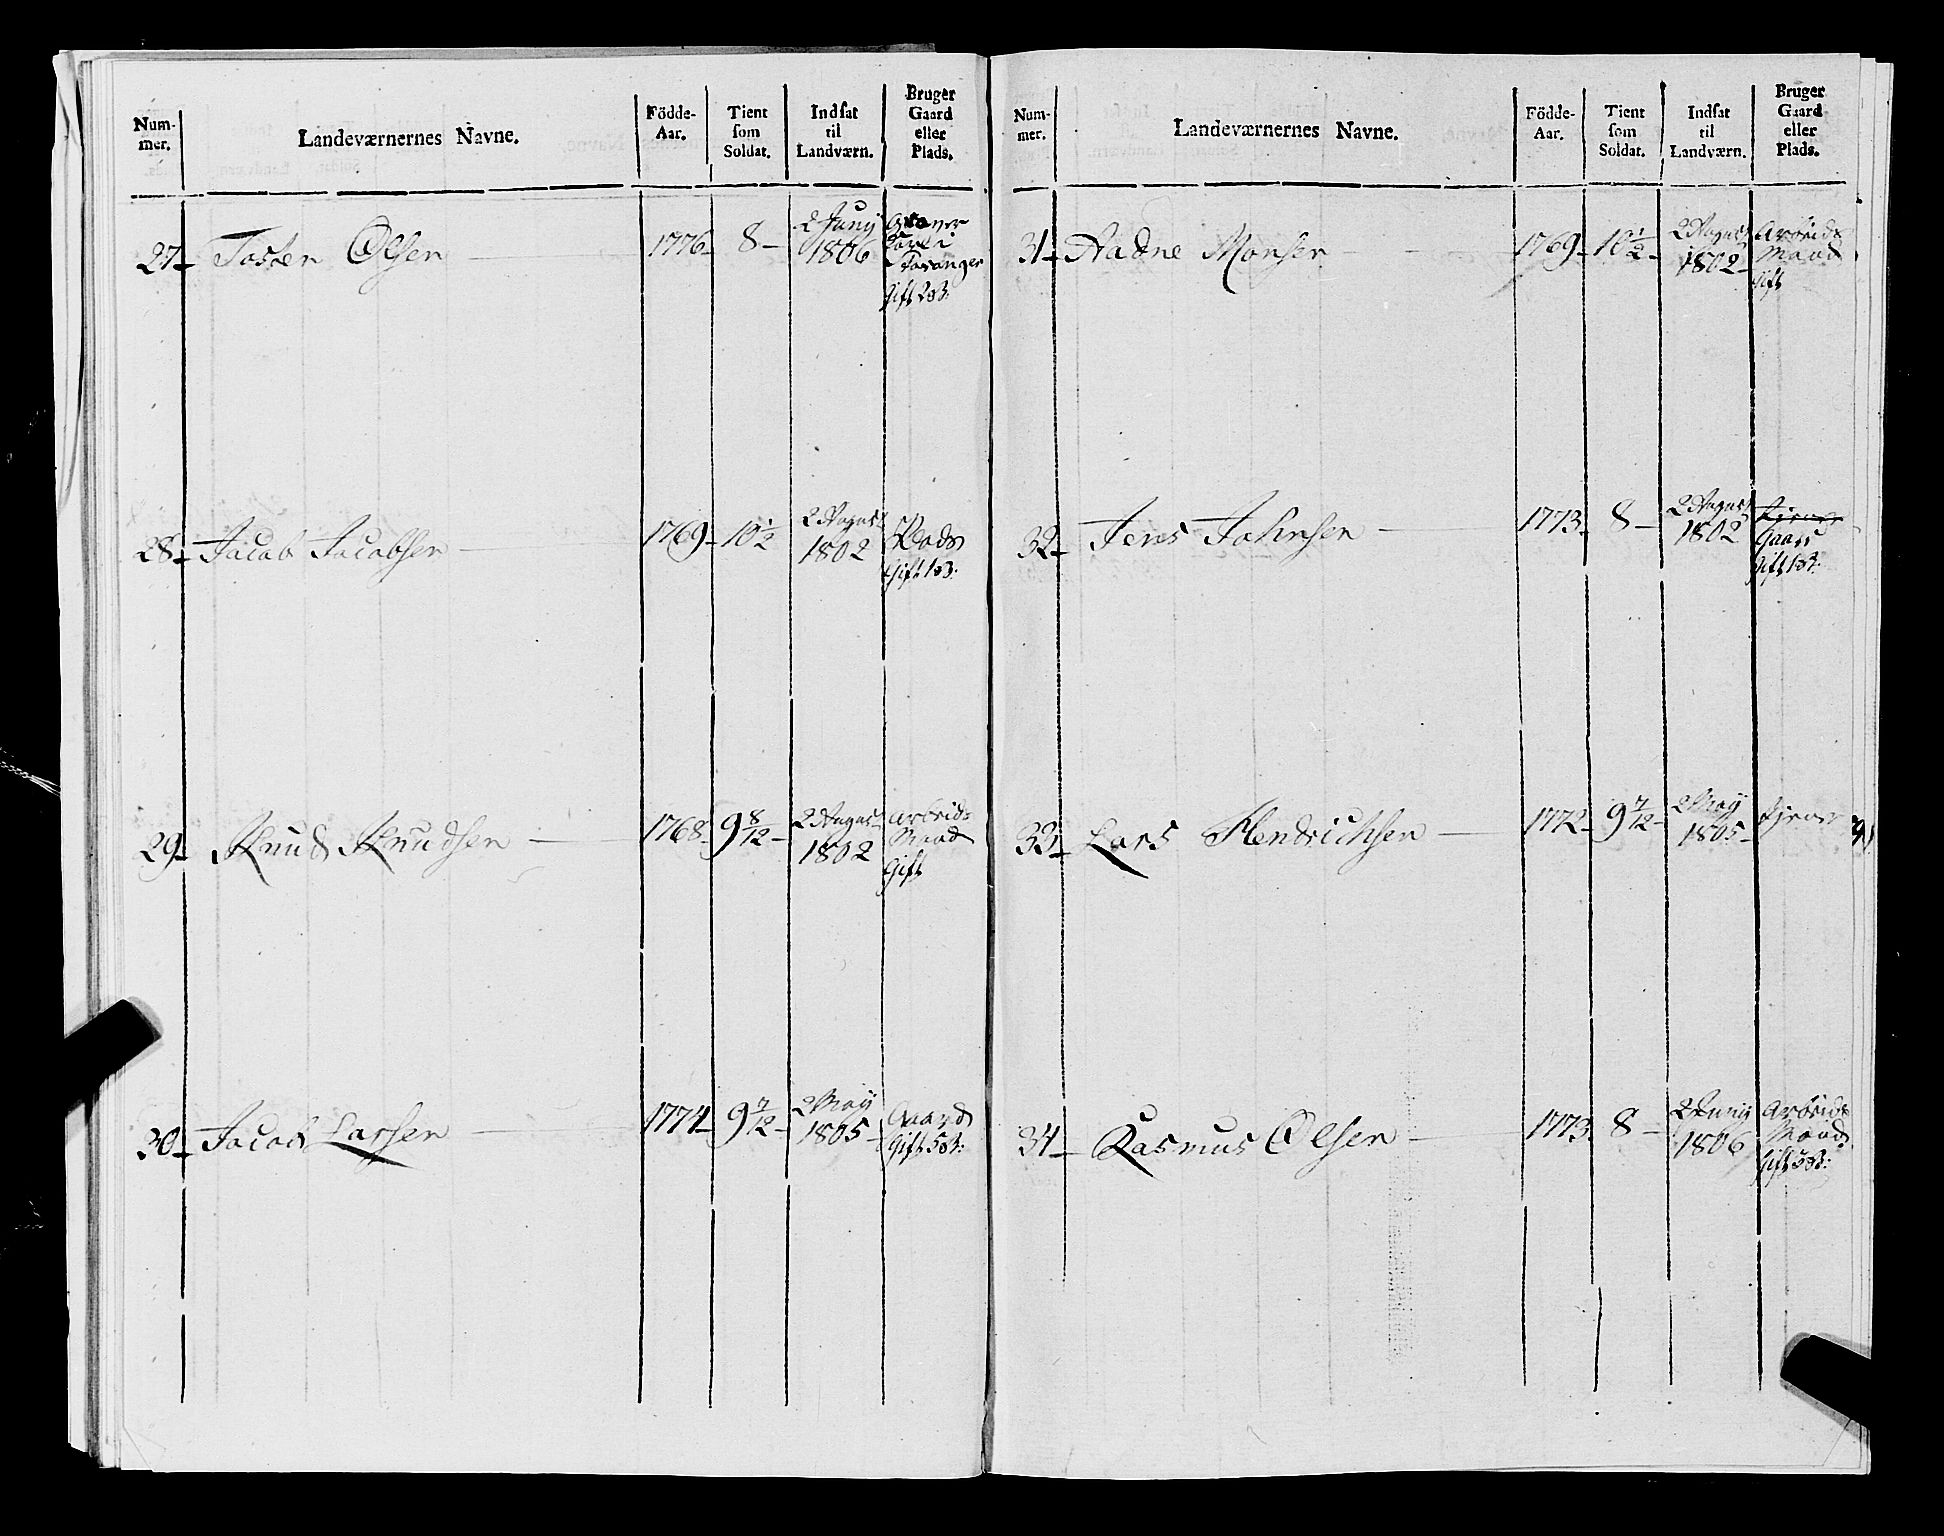 Num-
mer.
Landeværnernes Navne.
Födde-
Aar.
Tient
som
Soldat.
Indsat
til
Landværn.
Bruger
Gaard
eller
Plads.
27 Tosten Olsen 1776 8 2 Juny
1806
Stavanger
Gift 2 B:
28 Jacob Jacobsen 1769 10 1/2 2 August
1802
Plads
Gift 1 B:
29 Knud Knudsen 1768 9 8/12 2 August
1802
Arbeids
Mand
Gift
30 Jacob Larssen 1774 9 7/12 2 May
1805
Gaard
Gift 5 B:
Num-
mer.
Landeværnernes Navne.
Födde-
Aar.
Tient
som
Soldat.
Indsat
til
Landværn.
Bruger
Gaard
eller
Plads.
31 Aadne Monsen 1769 10 1/2 2 August
1802
Arbeids
Mand
Gift
32 Jens Johnsen 1773 8 2 August
1802
Gaard
Gift 1 B:
33 Lars Hendrichsen 1772 9 7/12 2 May
1805
tjener
34 Rasmus Olsen 1773 8 2 Juny
1806
Arbeids
Mand
Gift 3 B: